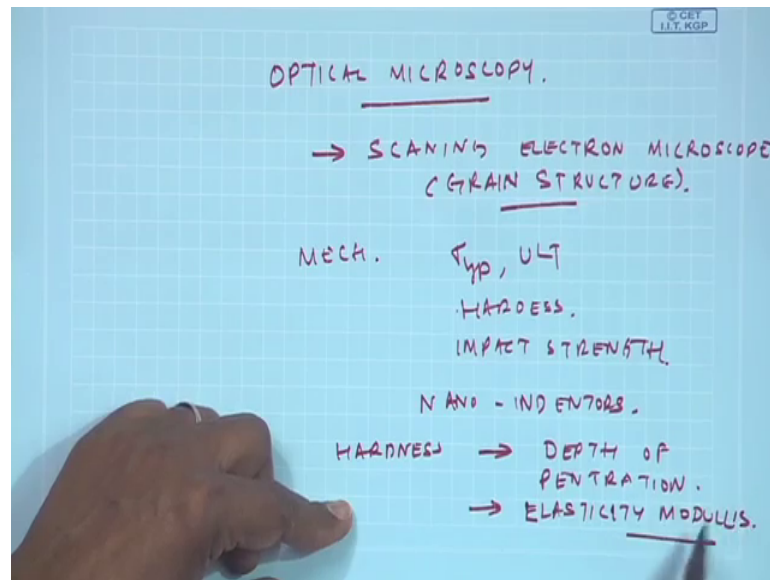 © CET
I.I.T. KGP
OPTICAL MICROSCOPY.
→ SCANING ELECTRON MICROSCOPE
(GRAIN STRUCTURE).
MECH. σyp, ULT
HARDESS.
IMPACT STRENGTH.
NANO-INDENTORS.
HARDNESS → DEPTH OF
PENTRATION.
→ ELASTICITY MODULUS.